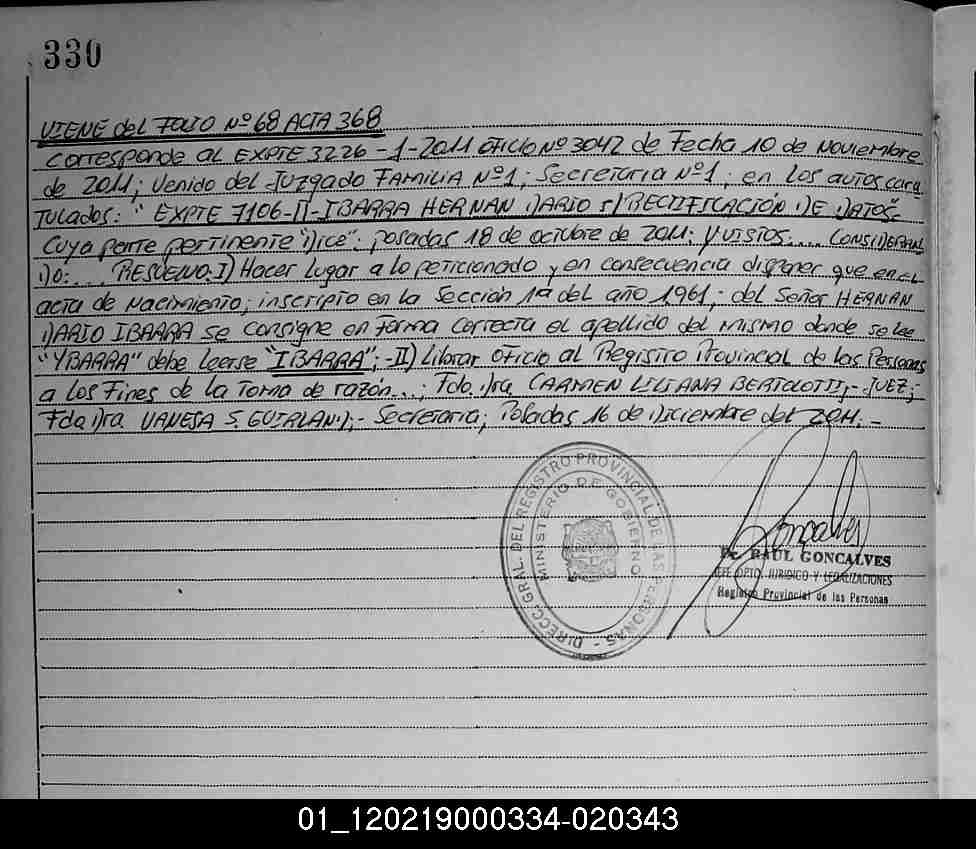 330
VIENE del FOLIO Nº 68 ACTA 368
Corresponde al EXPTE 3226-1-2011 OFICIO Nº 3042 de Fecha 10 de Noviembre
de 2011; venido del Juzgado FAMILIA Nº 1; Secretaria Nº 1; en los autos cara
tulados: "EXPTE 7106- -IBARRA HERNAN DARIO s/ RECTIFICACIÓN DE DATOS"
Cuya parte pertinente "Dice": Posadas 18 de octubre de 2011: Y VISTOS.... CONSIDERAN
DO:... RESUELVO: I) Hacer Lugar a lo peticionado y en consecuencia disponer que en el
acta de Nacimiento; inscripto en la Sección 1ª del año 1961; del Señor HERNAN
DARIO IBARRA se consigne en forma correcta el apellido del mismo donde se lee
"YBARRA" debe leerse "IBARRA"; -II) Librar oficio al Registro Provincial de las Personas
a los Fines de la Toma de razón...; Fdo. Dra. CARMEN LILIANA BERTOLOTTI;- JUEZ;
Fdo Dra. VANESA S. GUIRLAND;- Secretaria; Posadas 16 de Diciembre del 2011.-
DIRECC. GRAL. DEL REGISTRO PROVINCIAL DE LAS PERSONAS -
MINISTERIO DE GOBIERNO
Goncalves
Dr. RAUL GONCALVES
JEFE DPTO. JURIDICO Y LEGALIZACIONES
Registro Provincial de las Personas
01_120219000334-020343